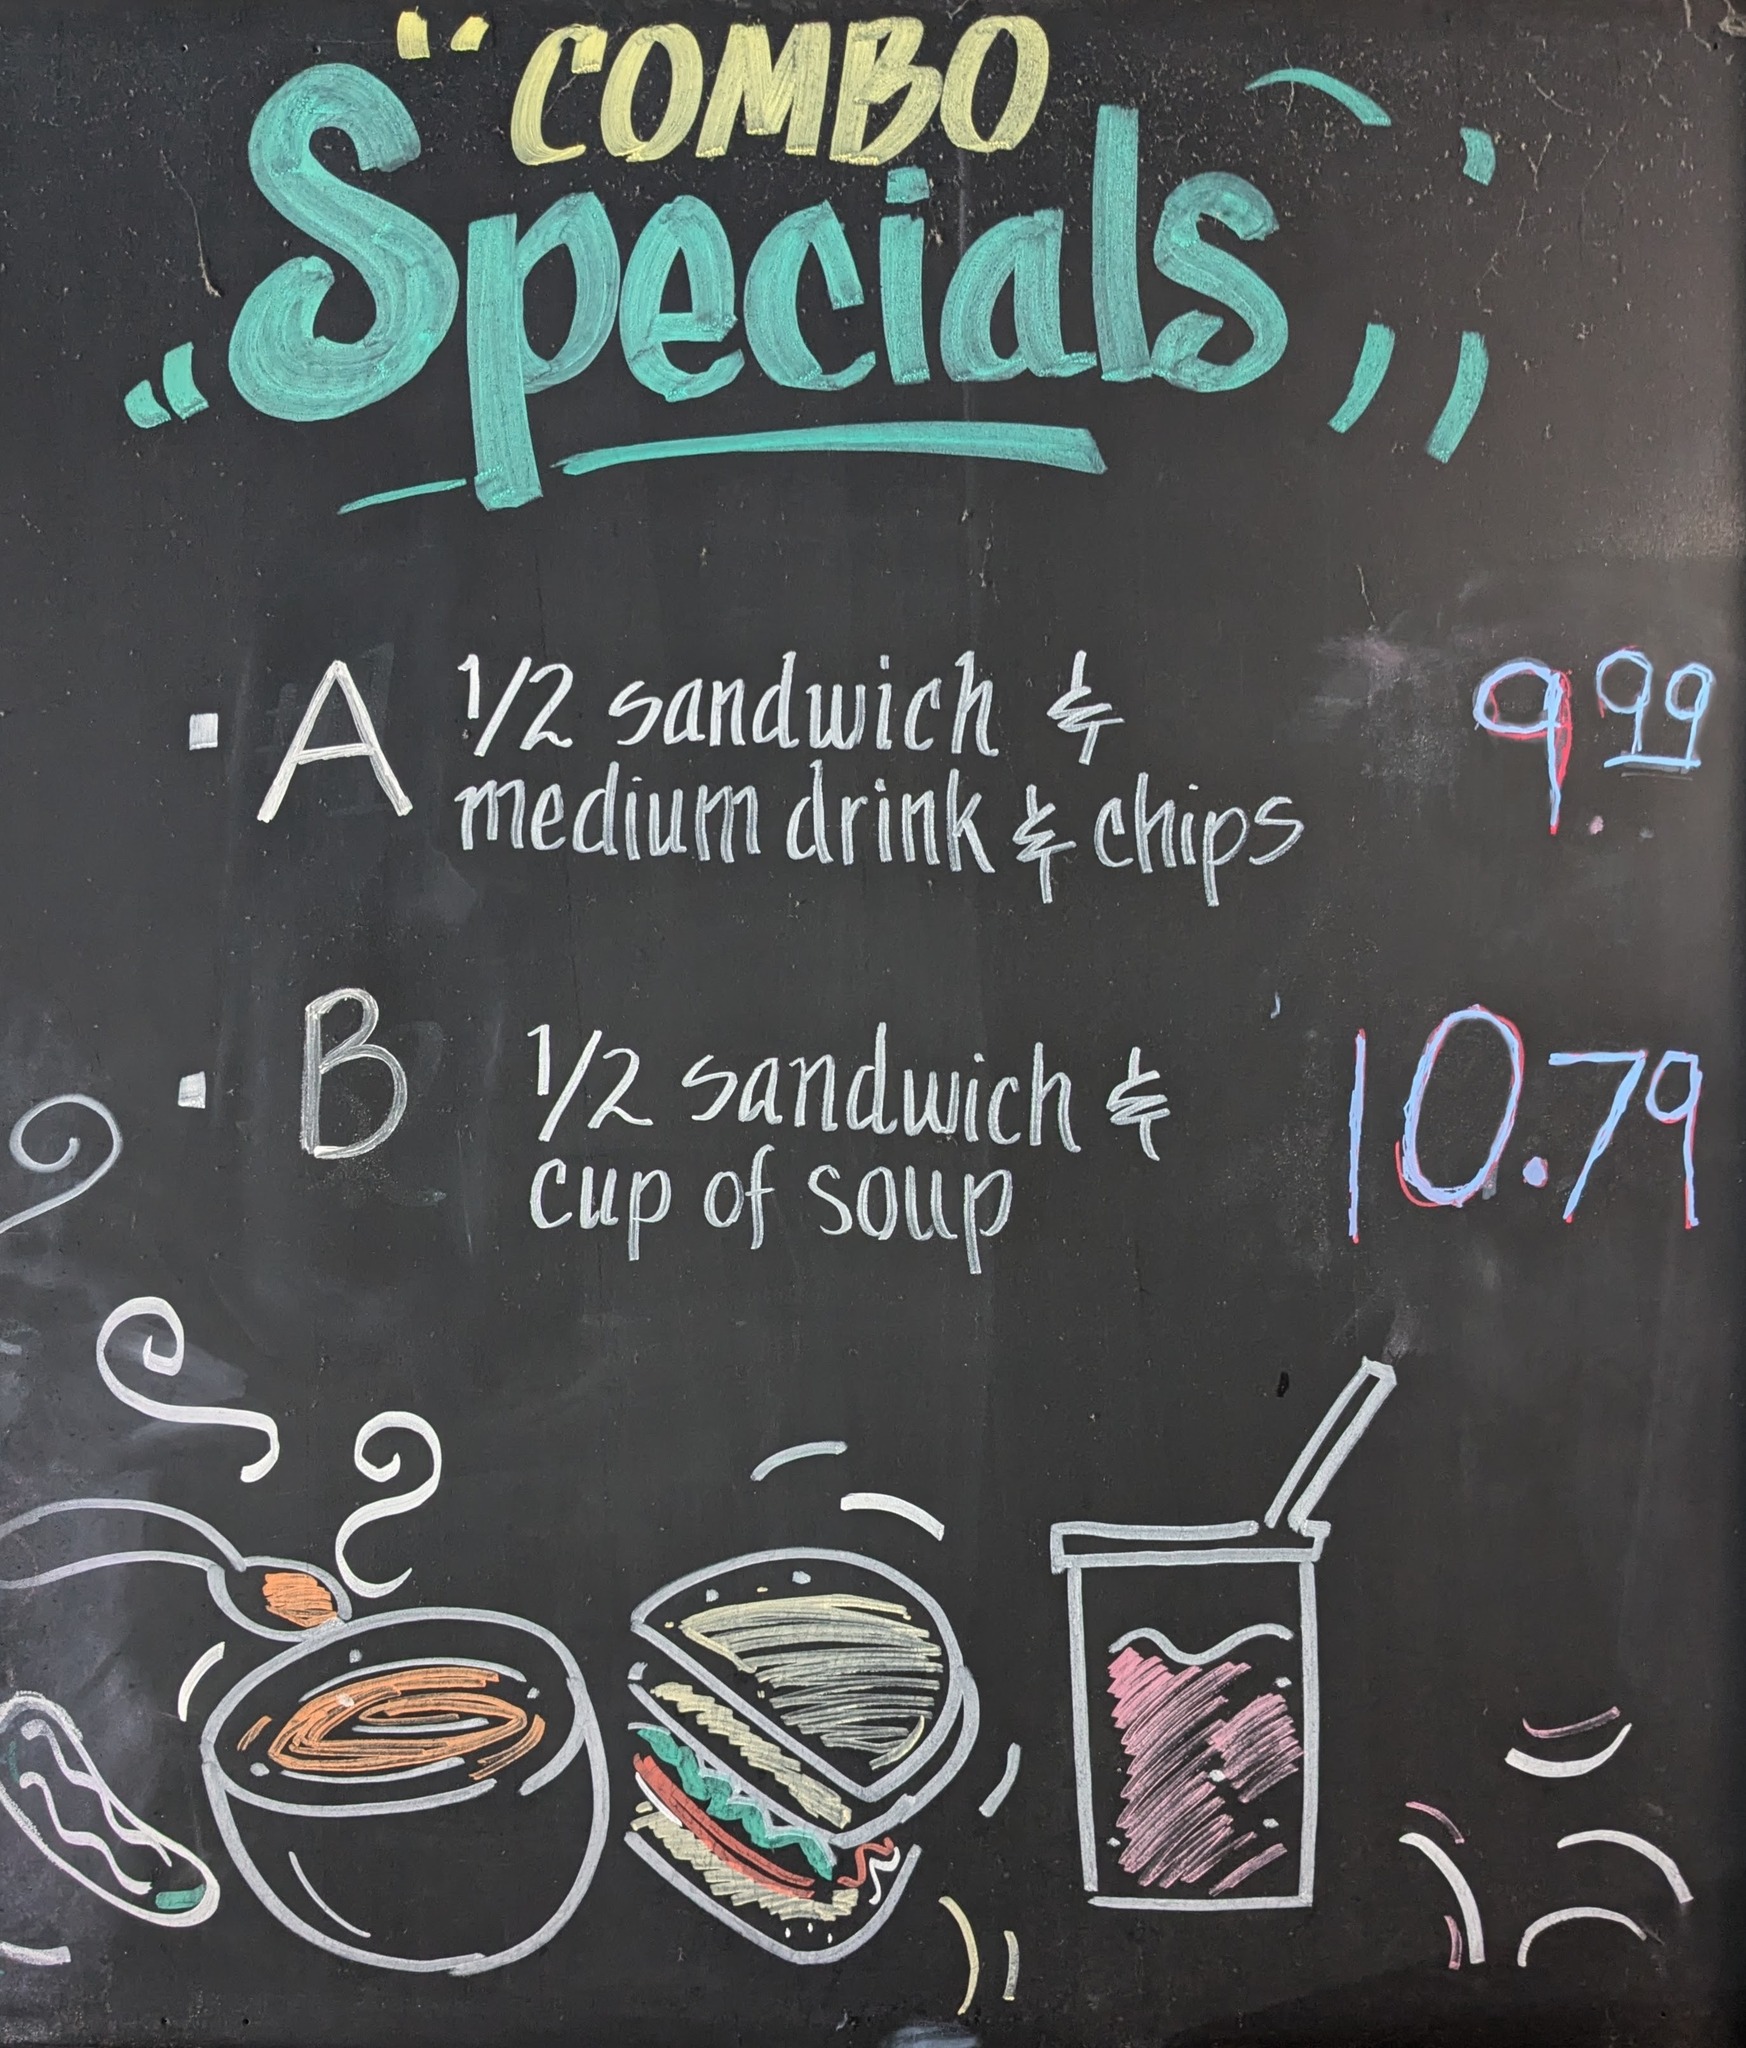 COMBO
Specials
A 1/2 sandwich & 9.99
medium drink & chips
B 1/2 sandwich & 10.79
cup of soup